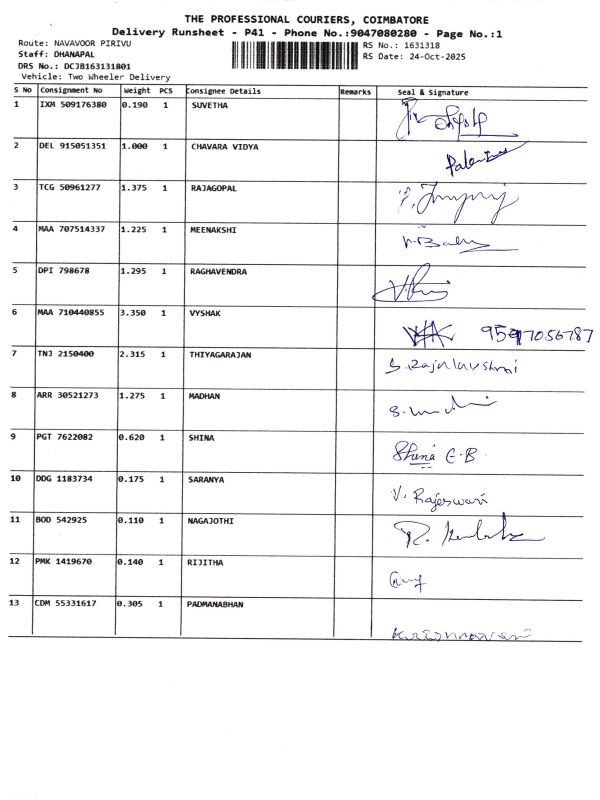 THE PROFESSIONAL COURIERS, COIMBATORE
Delivery Runsheet - P41 - Phone No.:9047080280 - Page No.:1
Route: NAVAVOOR PIRIVU
RS No.: 1631318
Staff: DHANAPAL
RS Date: 24-Oct-2025
DRS No.: DCJB163131801
Vehicle: Two Wheeler Delivery
S No Consignment No Weight PCS Consignee Details Remarks Seal & Signature
1 IXM 509176380 0.190 1 SUVETHA
2 DEL 915051351 1.000 1 CHAVARA VIDYA
3 TCG 50961277 1.375 1 RAJAGOPAL
4 MAA 707514337 1.225 1 MEENAKSHI
5 DPI 798678 1.295 1 RAGHAVENDRA
6 MAA 710440855 3.350 1 VYSHAK
7 TNJ 2150400 2.315 1 THIYAGARAJAN S. Rajalakshmi
8 ARR 30521273 1.275 1 MADHAN
9 PGT 7622082 0.620 1 SHINA Shina E.B
10 DDG 1183734 0.175 1 SARANYA V. Rajeswari
11 BOD 542925 0.110 1 NAGAJOTHI
12 PMK 1419670 0.140 1 RIJITHA
13 CDM 55331617 0.305 1 PADMANABHAN